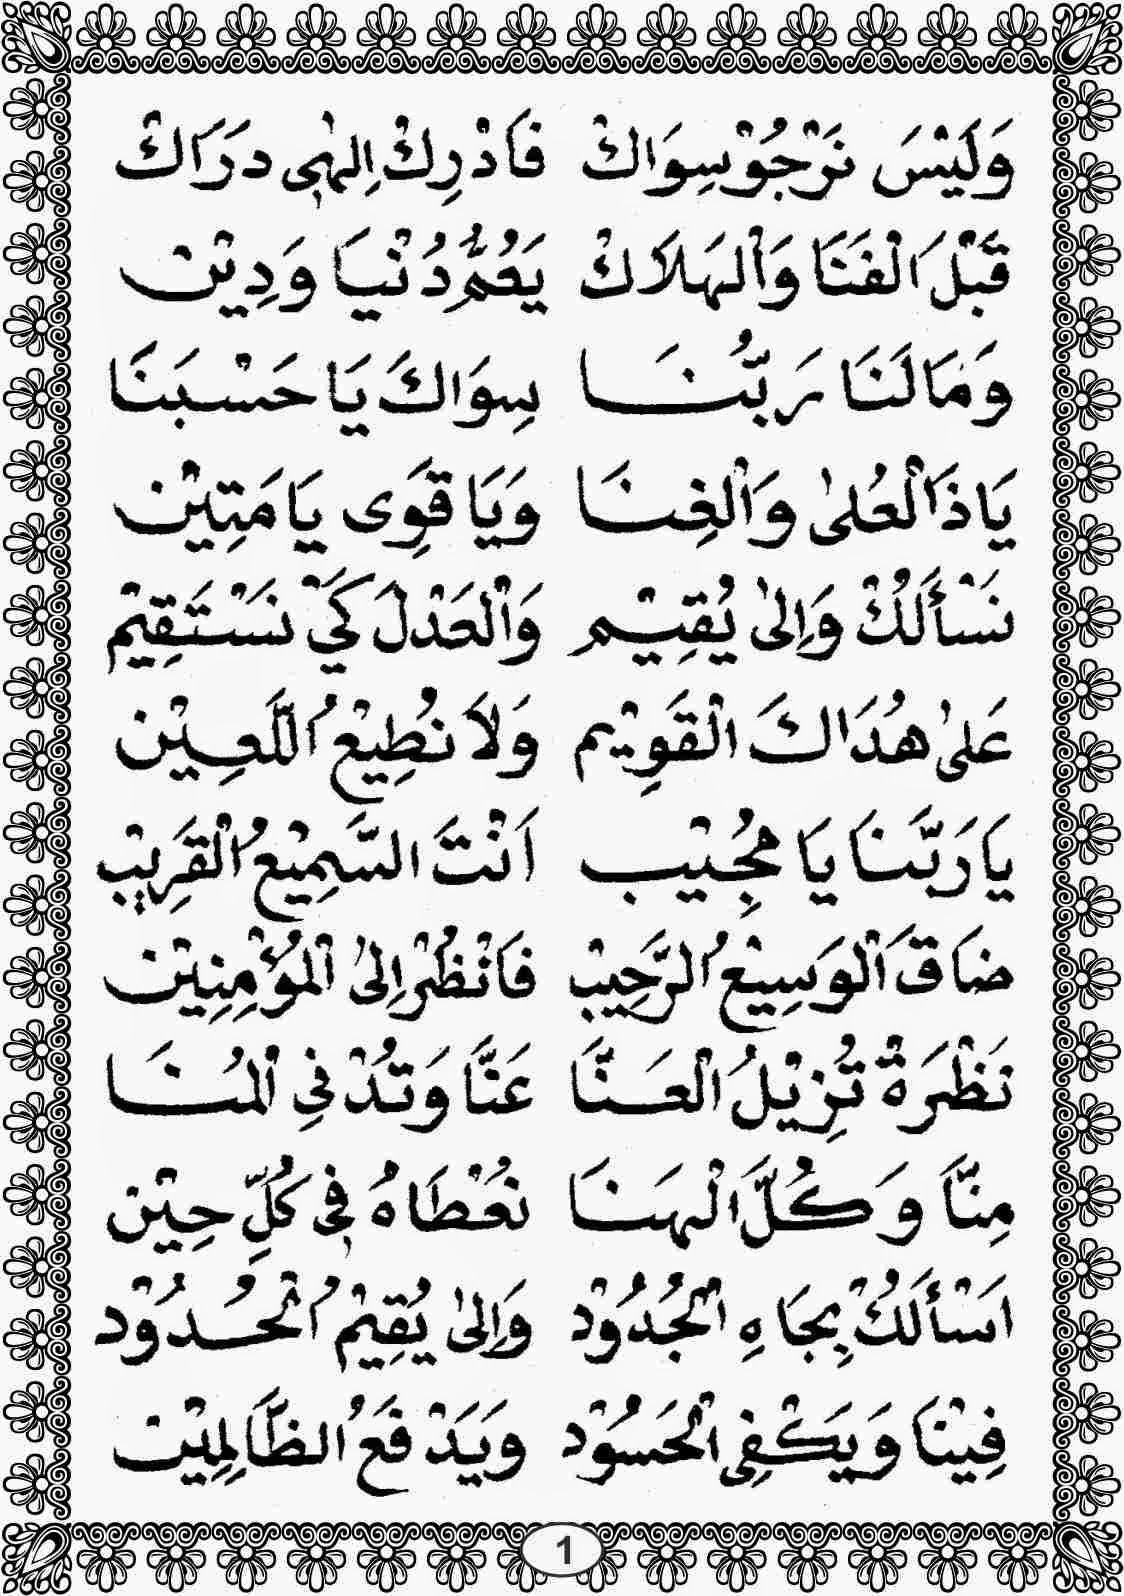 وَلَيْسَ نَرْجُوْ سِوَاكْ فَادْرِكْ اِلٰهِى دَرَاكْ
قَبْلَ الْفَنَا وَالْهَلَاكْ يَعُمُّ دُنْيَا وَدِيْن
وَمَا لَنَا رَبُّنَا سِوَاكَ يَا حَسْبَنَا
يَاذَا الْعُلٰى وَالْغِنَا وَيَا قَوِى يَا مَتِيْن
نَسْأَلُكْ وَالِىْ يُقِيْم وَالْعَدْلَ كَيْ نَسْتَقِيْم
عَلٰى هُدَاكَ الْقَوِيْم وَلَا نُطِيْعُ اللَّعِيْن
يَا رَبَّنَا يَا مُجِيْب اَنْتَ السَّمِيْعُ الْقَرِيْب
ضَاقَ الْوَسِيْعُ الرَّحِيْب فَانْظُرْ اِلىٰ الْمُؤْمِنِيْن
نَظْرَةْ تُزِيْلُ الْعَنَّا عَنَّا وَتُدْ فِي الْمُنَا
مِنَّا وَكُلَّ الْهَنَا نُعْطَاهُ فِى كُلِّ حِيْن
اَسْأَلُكْ بِجَاهِ الْجُدُوْد وَالِىْ يُقِيْمُ الْحُدُوْد
فِيْنَا وَيَكْفِى الْحَسُوْد وَيَدْفَعُ الظَّالِمِيْن
1